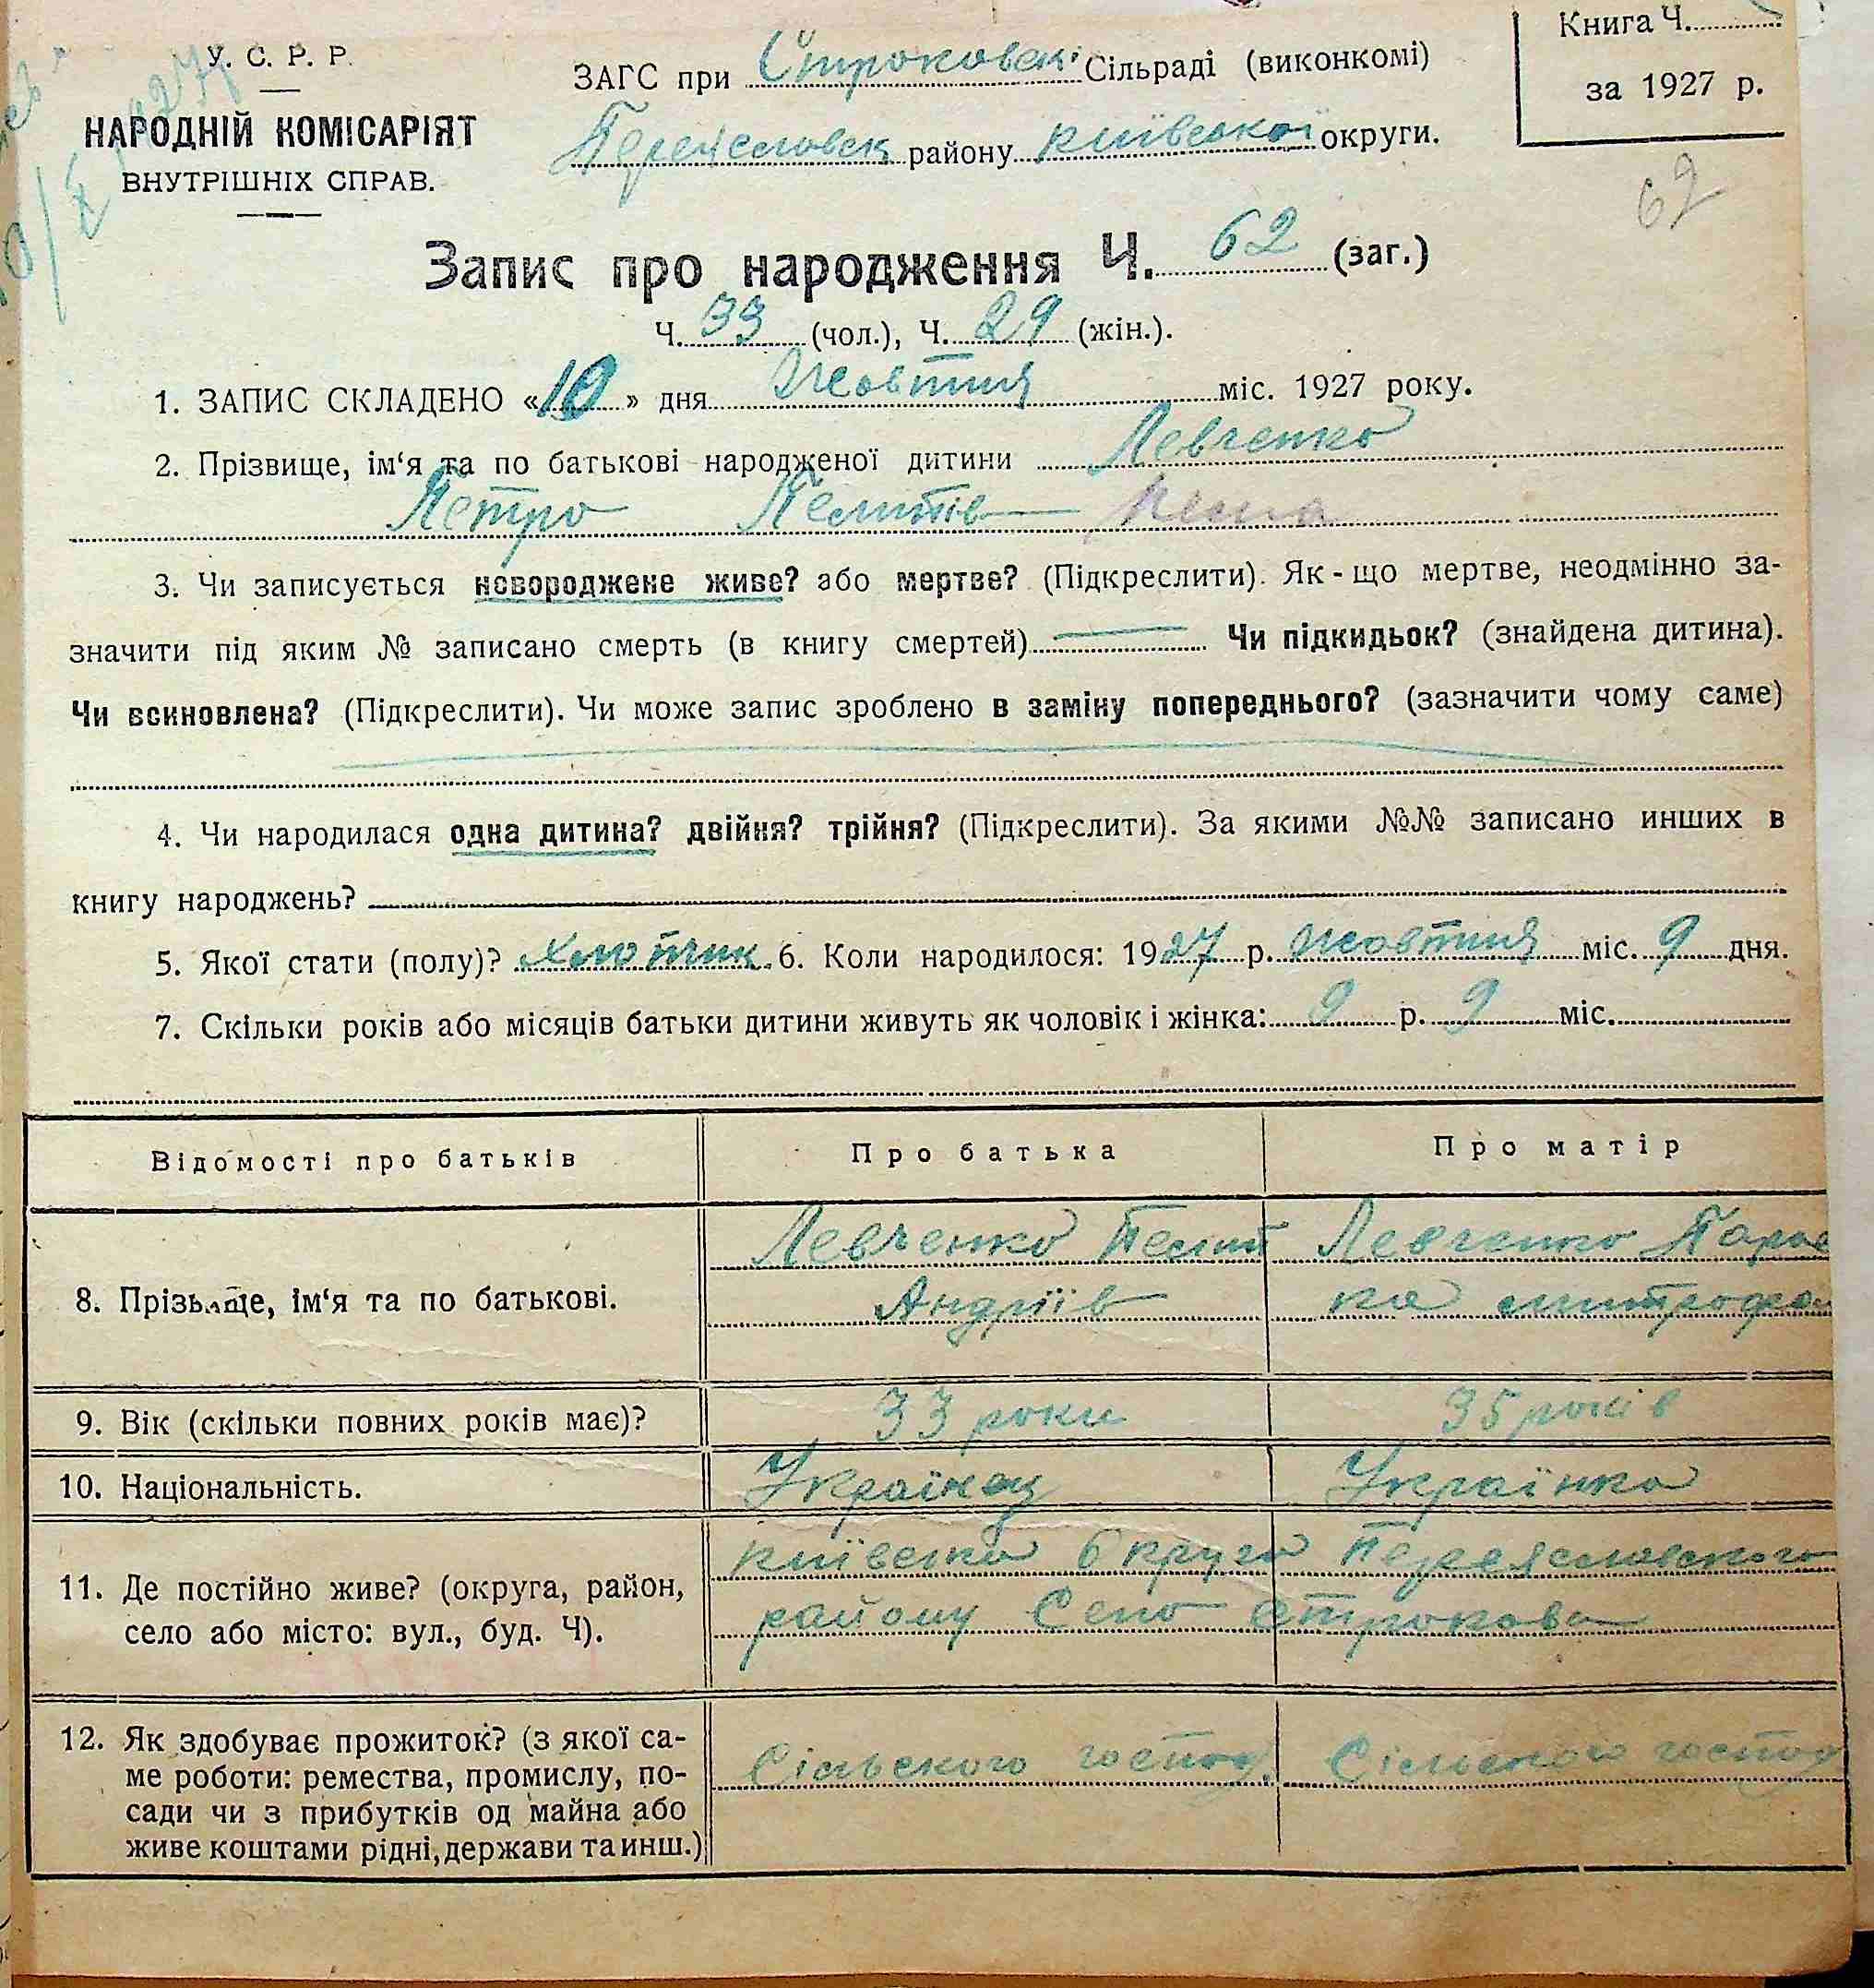 У. С. Р. Р.
НАРОДНІЙ КОМІСАРІЯТ
ВНУТРІШНІХ СПРАВ.
ЗАГС при Строковскі Сільраді (виконкомі)
району київської округи.
Книга Ч.
за 1927 р.
62
Запис про народження Ч. 62 (заг.)
Ч. 33 (чол.), Ч. 29 (жін.).
1. ЗАПИС СКЛАДЕНО «10» дня Жовтня міс. 1927 року.
2. Прізвище, ім‘я та по батькові народженої дитини Левченко
Петро
3. Чи записується новороджене живе? або мертве? (Підкреслити). Як-що мертве, неодмінно за-
значити під яким № записано смерть (в книгу смертей) Чи підкидьок? (знайдена дитина).
Чи всиновлена? (Підкреслити). Чи може запис зроблено в заміну попереднього? (зазначити чому саме)
4. Чи народилася одна дитина? двійня? трійня? (Підкреслити). За якими №№ записано инших в
книгу народжень?
5. Якої стати (полу)? хлопчик 6. Коли народилося: 1927 р. Жовтня міс. 9 дня.
7. Скільки років або місяців батьки дитини живуть як чоловік і жінка: 9 р. 9 міс.
Відомості про батьків Про батька Про матір
8. Прізвище, ім‘я та по батькові. Левченко Левченко Парас
Андріїв ка митрофан
9. Вік (скільки повних років має)? 33 роки 35 років
10. Національність. Українец Українка
11. Де постійно живе? (округа, район, київська Округа Переяславского
село або місто: вул., буд. Ч). району Село Строкова
12. Як здобуває прожиток? (з якої са-
ме роботи: ремества, промислу, по- Сільского господ. Сільского господ
сади чи з прибутків од майна або
живе коштами рідні, держави та инш.)